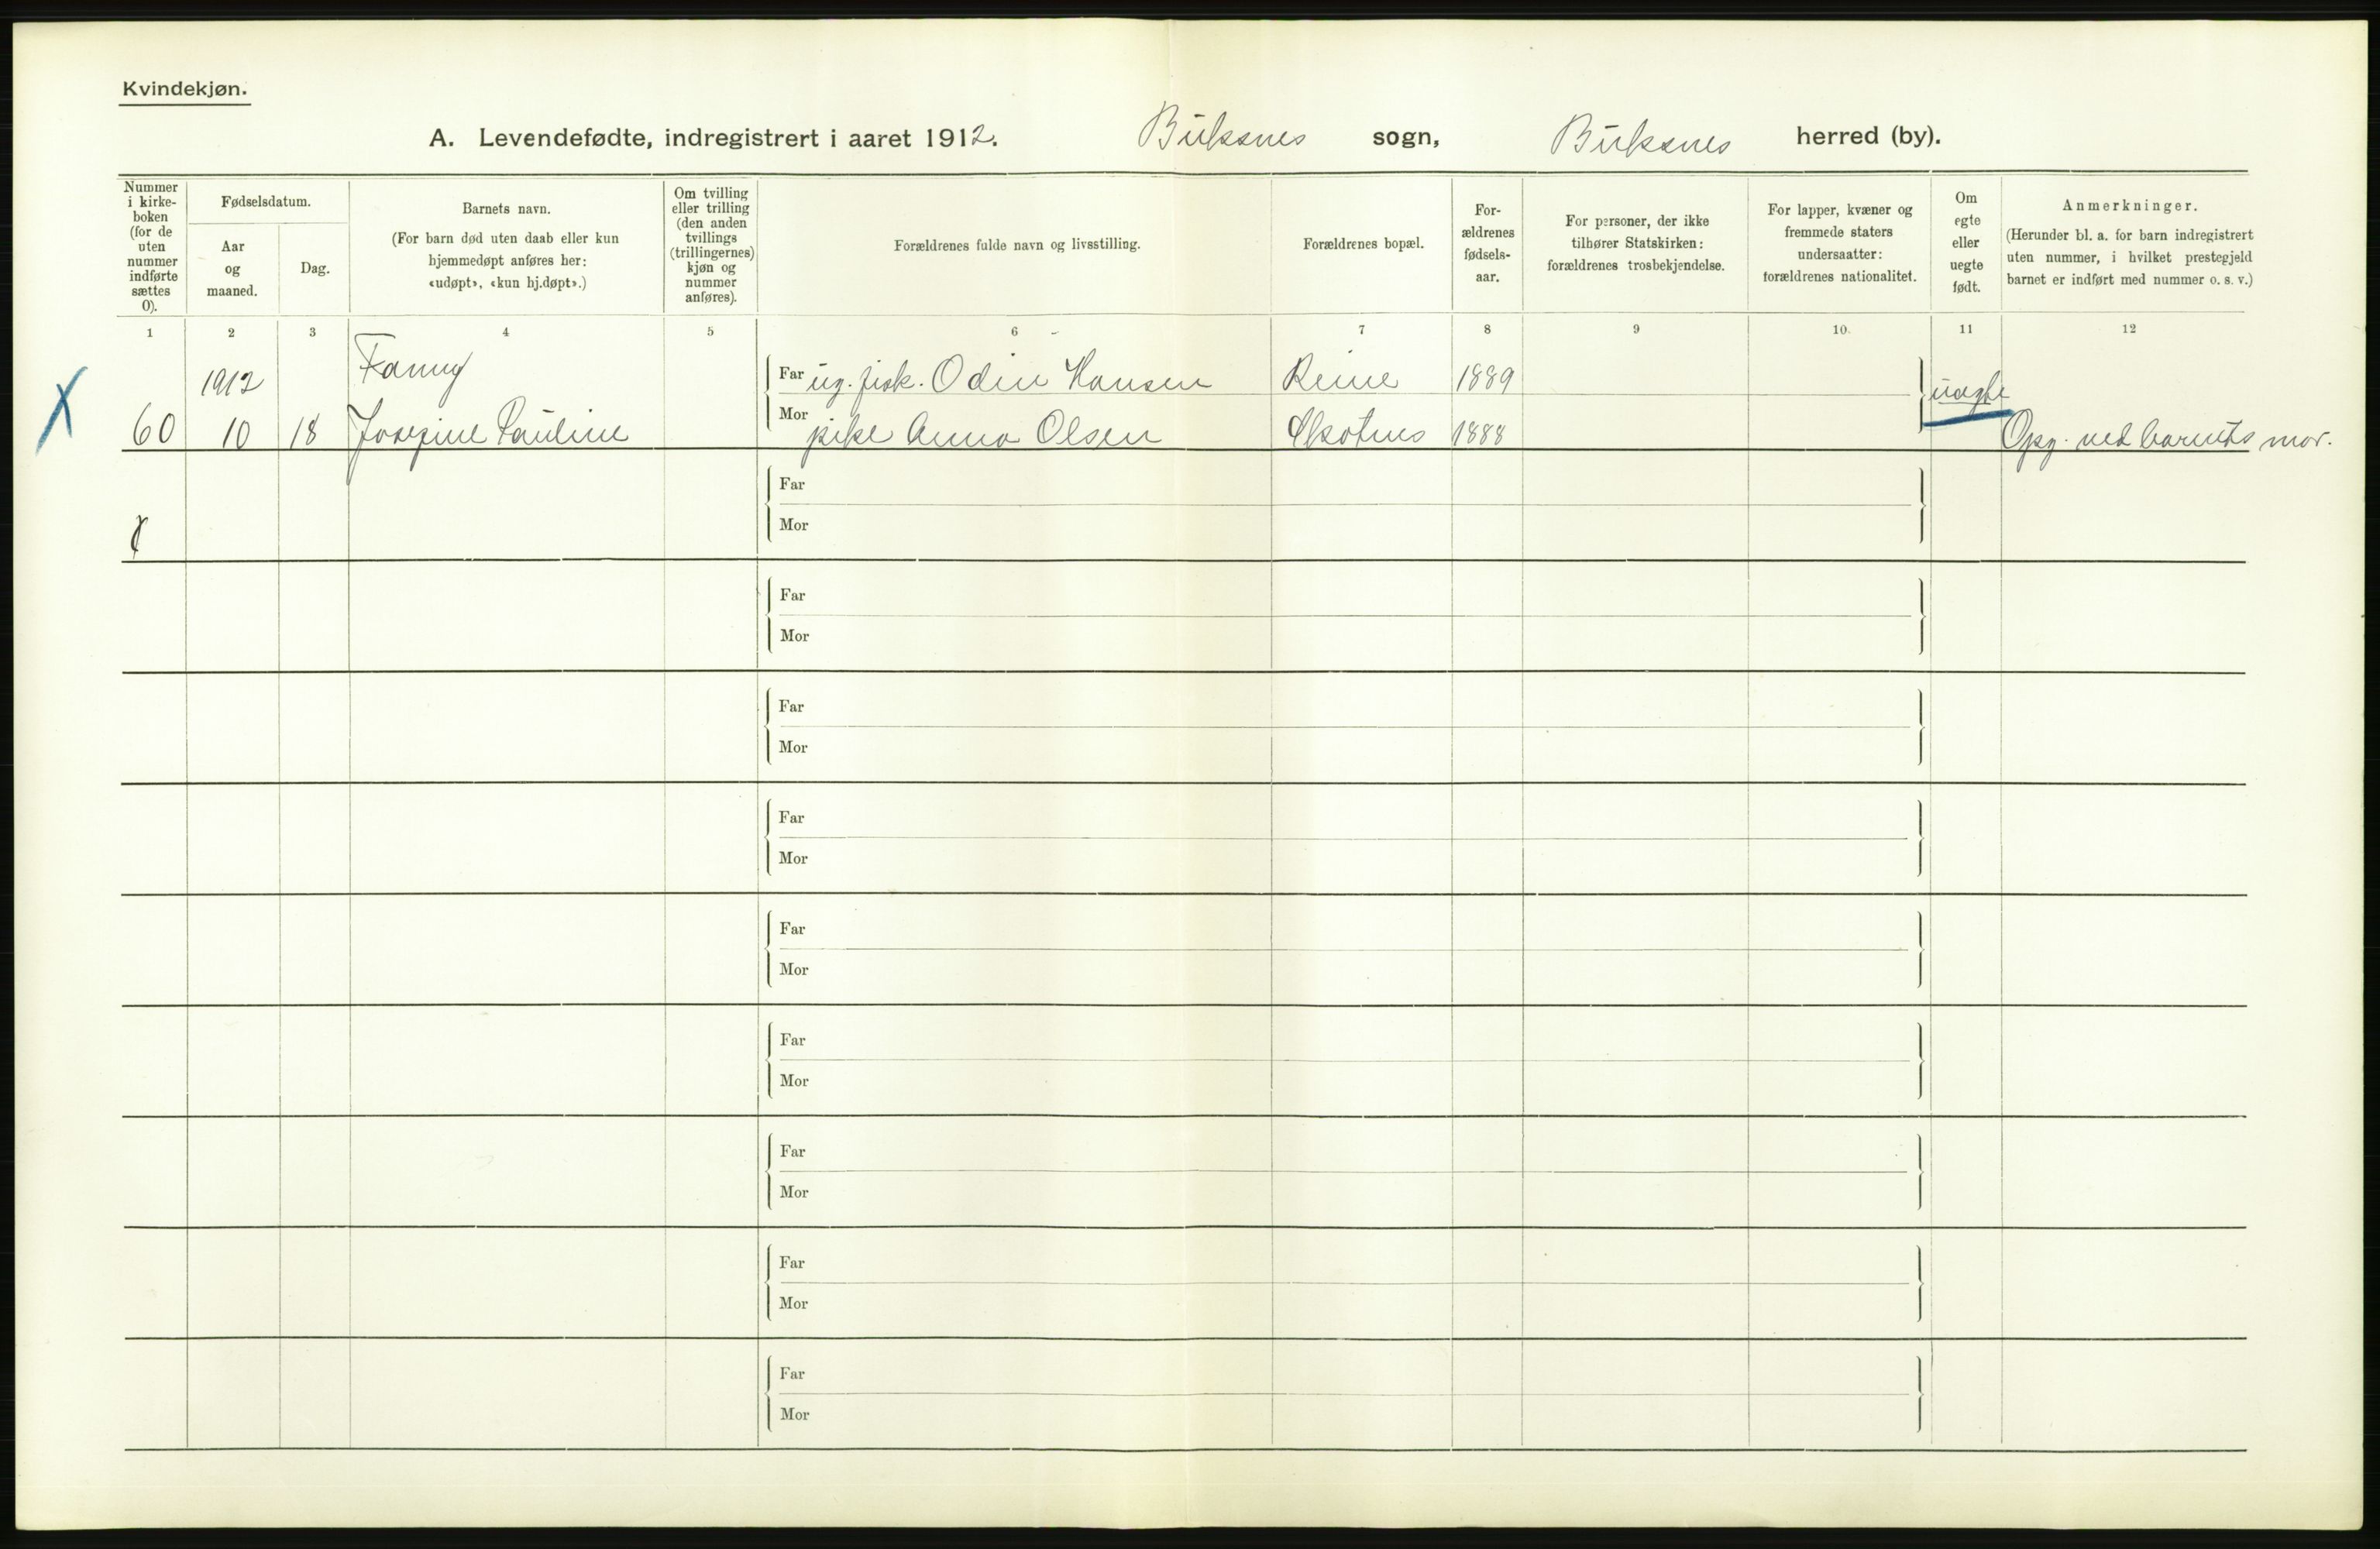 Kvindekjøn.
A. Levendefødte, indregistrert i aaret 1912. Buksnes sogn, Buksnes herred (by).
Nummer i kirke-boken (for de uten nummer indførte sættes 0).
Fødselsdatum.
Aar og maaned.
Dag.
Barnets navn.
(For barn død uten daab eller kun hjemmedøpt anføres her: «udøpt», «kun hj.døpt».)
Om tvilling eller trilling (den anden tvillings (trillingernes) kjøn og nummer anføres).
Forældrenes fulde navn og livsstilling.
Forældrenes bopæl.
For-ældrenes fødsels-aar.
For personer, der ikke tilhører Statskirken: forældrenes trosbekjendelse.
For lapper, kvæner og fremmede staters undersaatter: forældrenes nationalitet.
Om egte eller uegte født.
Anmerkninger.
(Herunder bl. a. for barn indregistrert uten nummer, i hvilket prestegjeld barnet er indført med nummer o. s. v.)
1 2 3 4 5 6 7 8 9 10. 11 12
X 1912 Fanny Far ug. fisk. Odin Hansen Reine 1889 uægte
60 10 18 Josefine Pauline Mor pike Anna Olsen Skotnes 1888 Opg. ved barnets mor.
Far
Mor
Far
Mor
Far
Mor
Far
Mor
Far
Mor
Far
Mor
Far
Mor
Far
Mor
Far
Mor